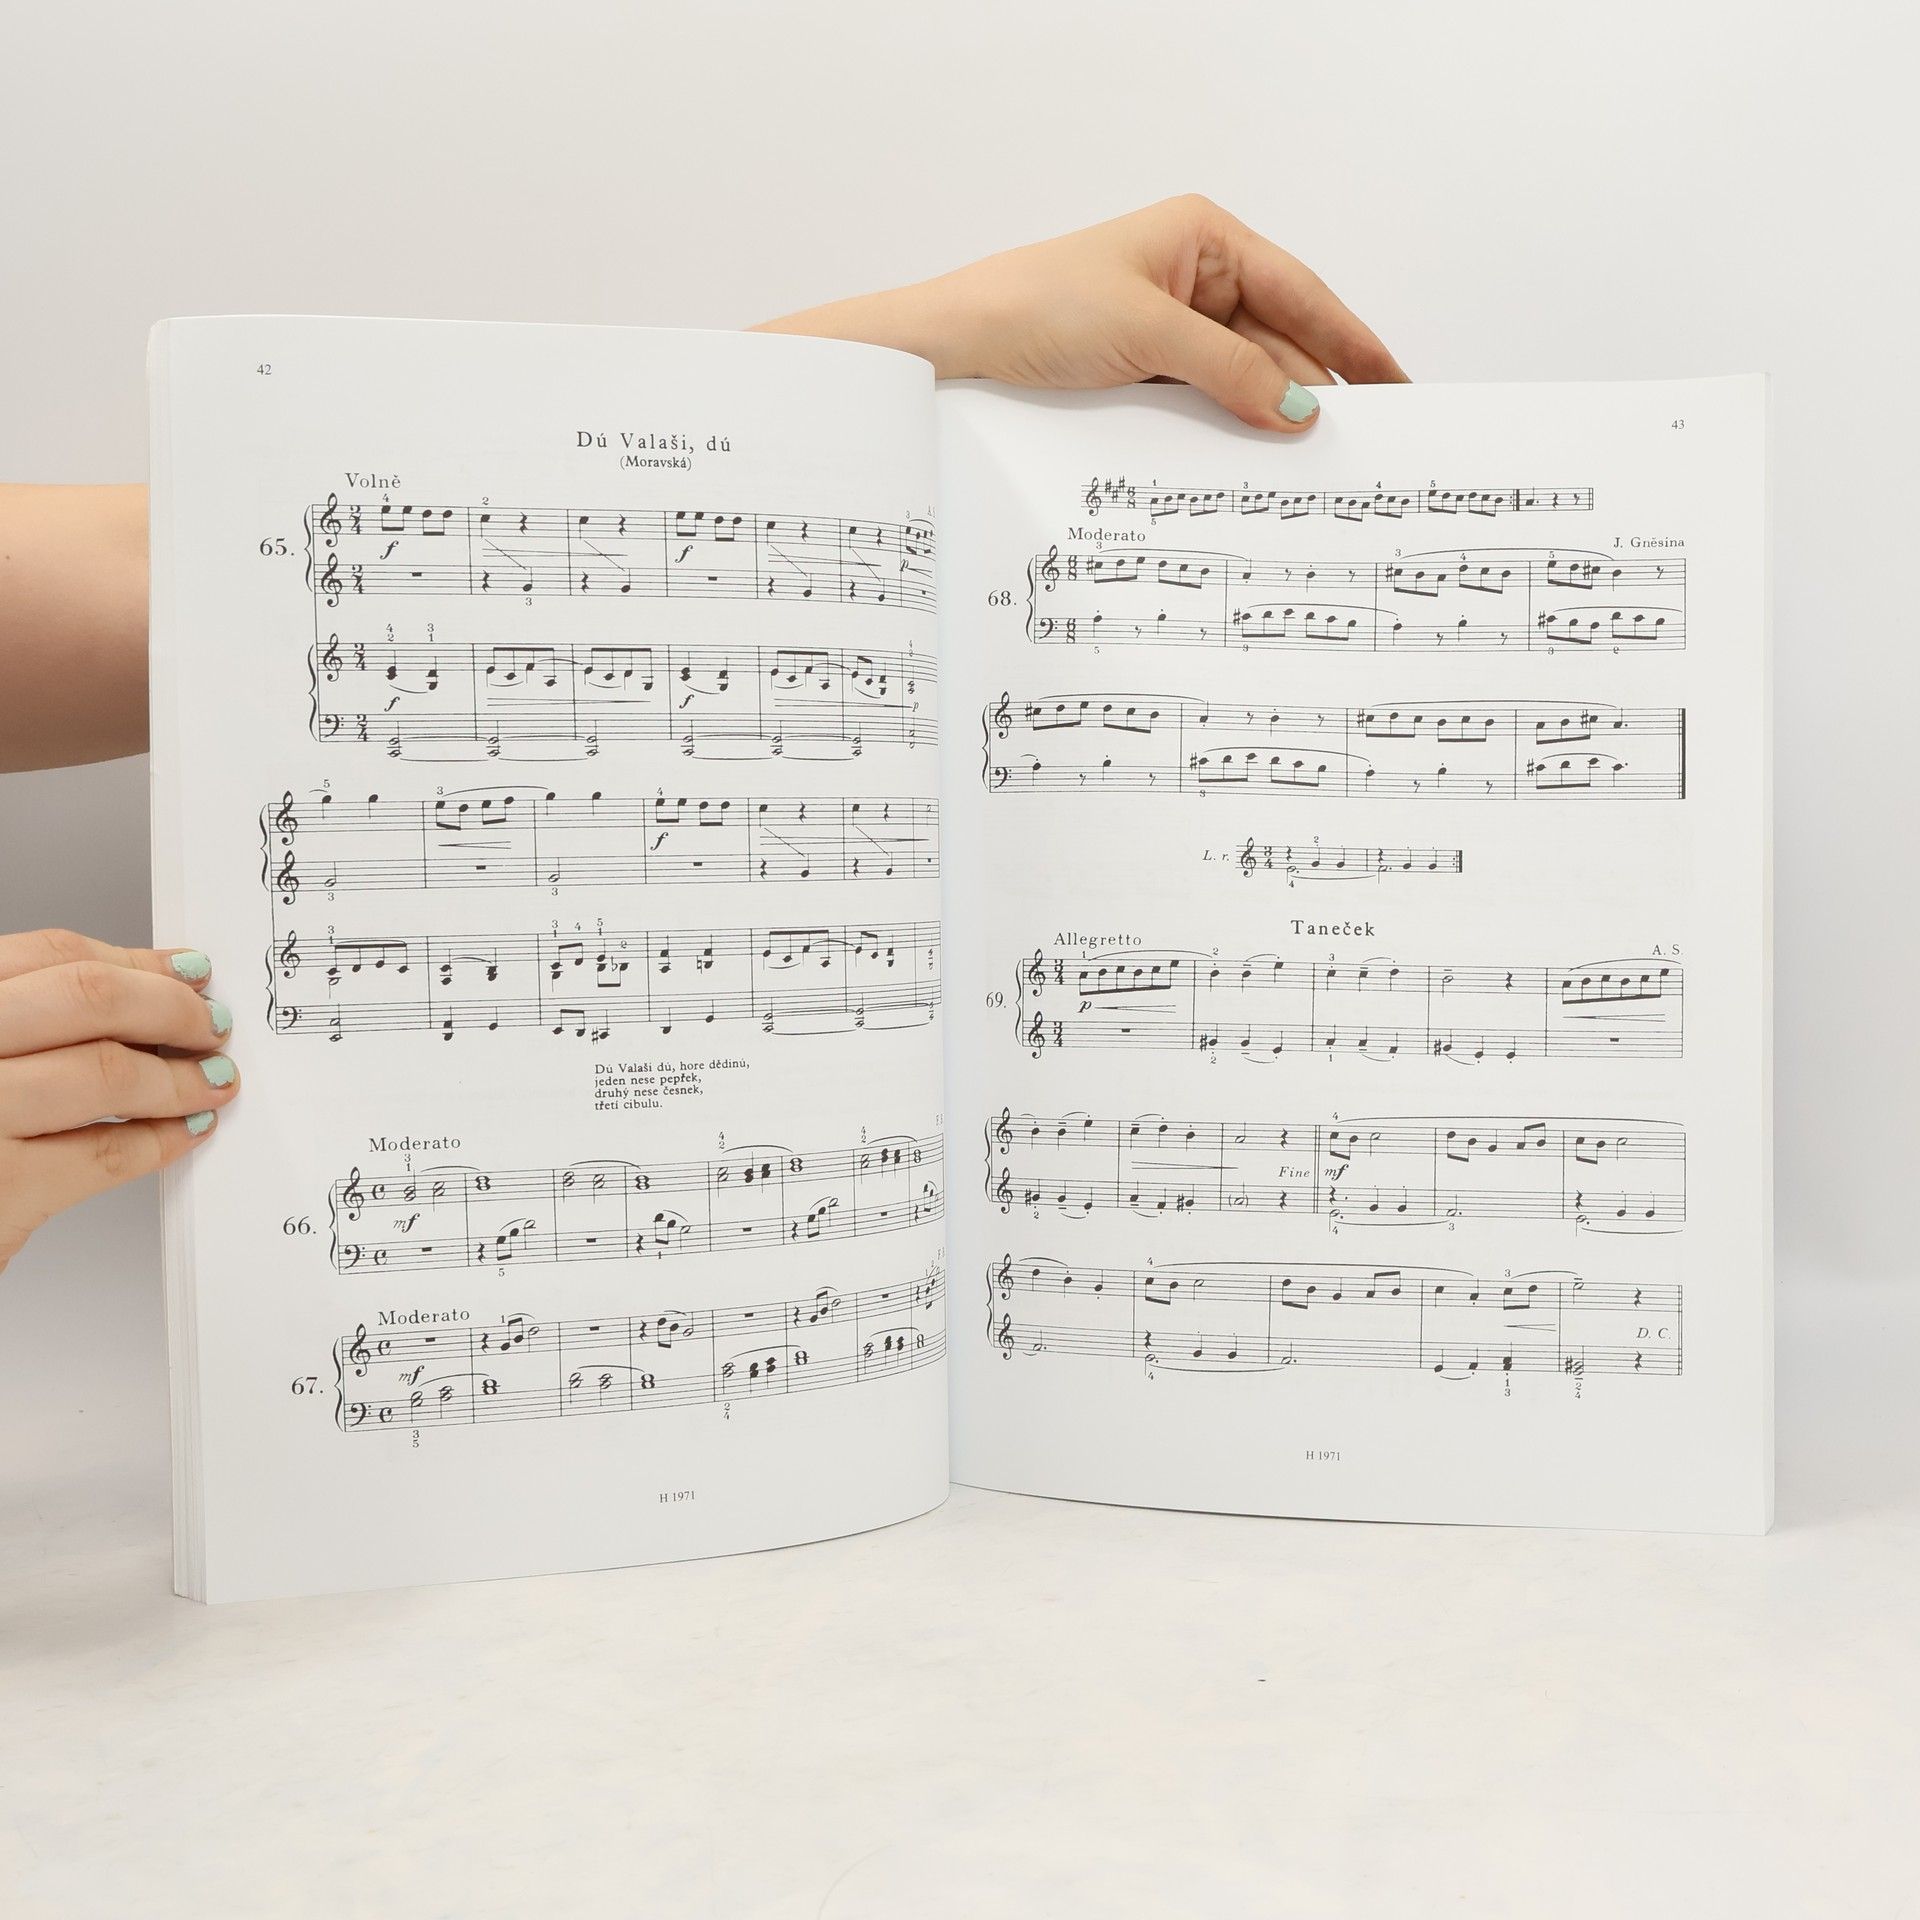 42
Dú Valaši, dú
(Moravská)
Volně
65.
f
f
f
f
p
f
Dú Valaši dú, hore dědinú,
jeden nese pepřek,
druhý nese česnek,
třetí cibulu.
Moderato
66.
mf
Moderato
67.
mf
H 1971
43
Moderato
J. Gněsina
68.
L. r.
Taneček
Allegretto
A. S.
69.
p
Fine
mf
D. C.
H 1971